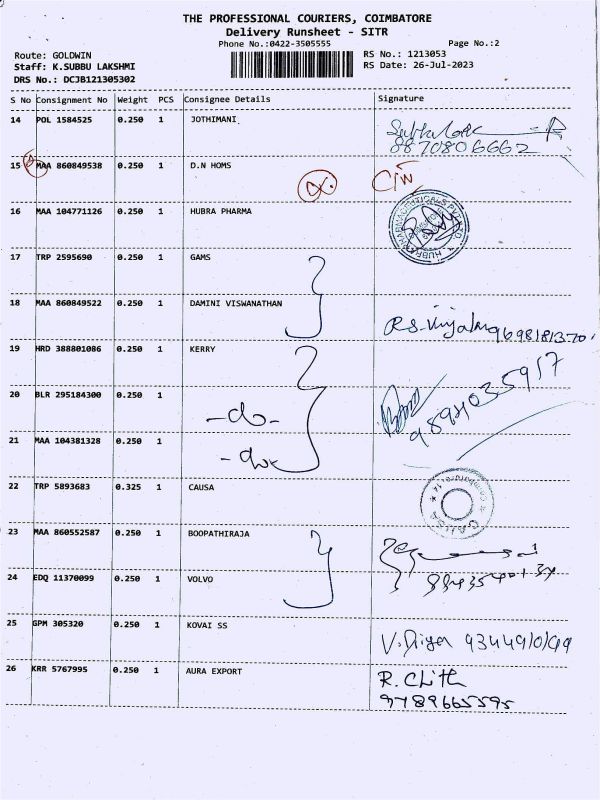 THE PROFESSIONAL COURIERS, COIMBATORE
Delivery Runsheet - SITR
Phone No.:0422-3505555 Page No.:2
Route: GOLDWIN RS No.: 1213053
Staff: K.SUBBU LAKSHMI RS Date: 26-Jul-2023
DRS No.: DCJB121305302
S No Consignment No Weight PCS Consignee Details Signature
14 POL 1584525 0.250 1 JOTHIMANI
8870806662
15 MAA 860849538 0.250 1 D.N HOMS
16 MAA 104771126 0.250 1 HUBRA PHARMA
17 TRP 2595690 0.250 1 GAMS
18 MAA 860849522 0.250 1 DAMINI VISWANATHAN
19 HRD 388801086 0.250 1 KERRY
20 BLR 295184300 0.250 1 -do-
21 MAA 104381328 0.250 1 -do-
22 TRP 5893683 0.325 1 CAUSA
CAUSA
23 MAA 860552587 0.250 1 BOOPATHIRAJA
24 EDQ 11370099 0.250 1 VOLVO
25 GPM 305320 0.250 1 KOVAI SS
26 KRR 5767995 0.250 1 AURA EXPORT R. Clith
9789665595